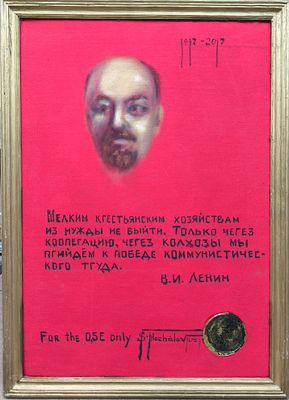 1917-2017
Мелким кгестьянским хозяйствам
из нужды не выйти. Только чегез
коопегацию, чегез колхозы мы
пгийдём к победе коммунистичес-
кого тгуда.
В.И. Ленин
For the OSE only